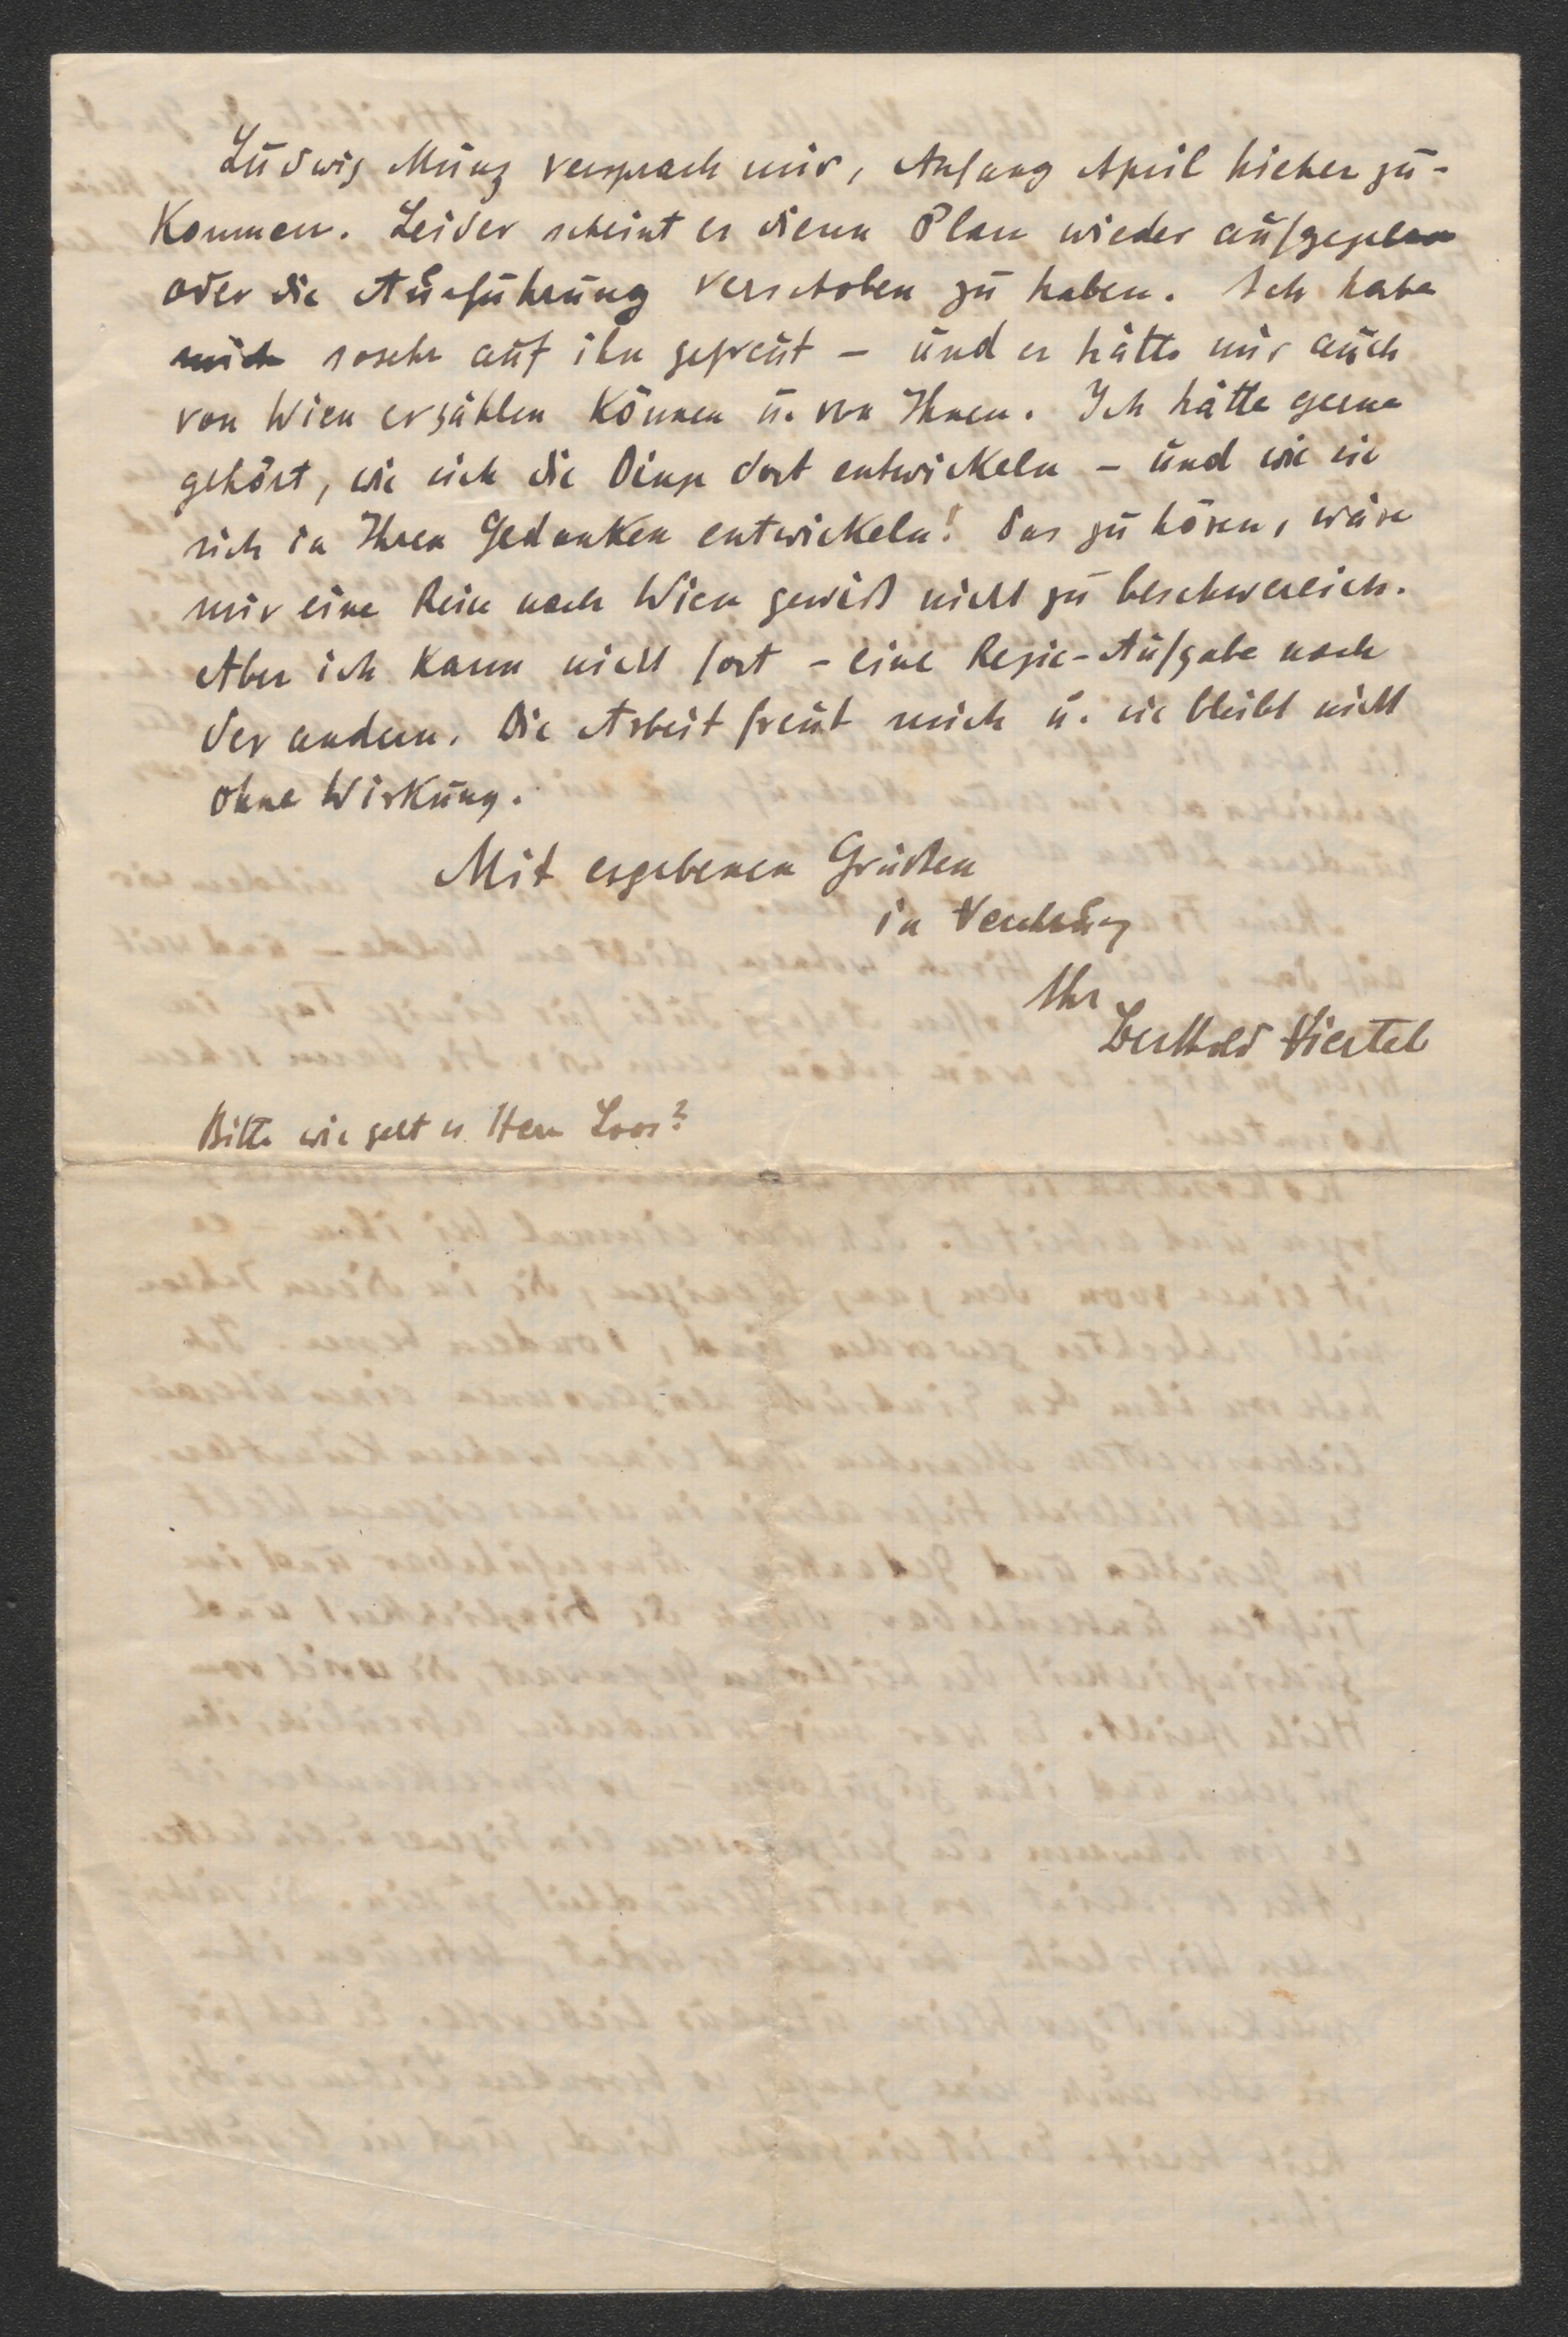 Ludwig Münz versprach mir, Anfang April hieher zu-
kommen. Leider scheint er diesen Plan wieder aufgegeben
oder die Ausführung verschoben zu haben. Ich habe
mich sosehr auf ihn gefreut – und er hätte mir auch
von Wien erzählen können u. von Ihnen. Ich hätte gerne
gehört, wie sich die Dinge dort entwickeln – und wie sie
sich in Ihren Gedanken entwickeln! Das zu hören, wäre
mir eine Reise nach Wien gewiß nicht zu beschwerlich.
Aber ich kann nicht fort – eine Regie-Aufgabe nach
der andern. Die Arbeit freut mich u. sie bleibt nicht
ohne Wirkung.
Mit ergebenen Grüßen
in Verehrung
Ihr
Berthold Viertel
Bitte wie geht es Herrn Loos?